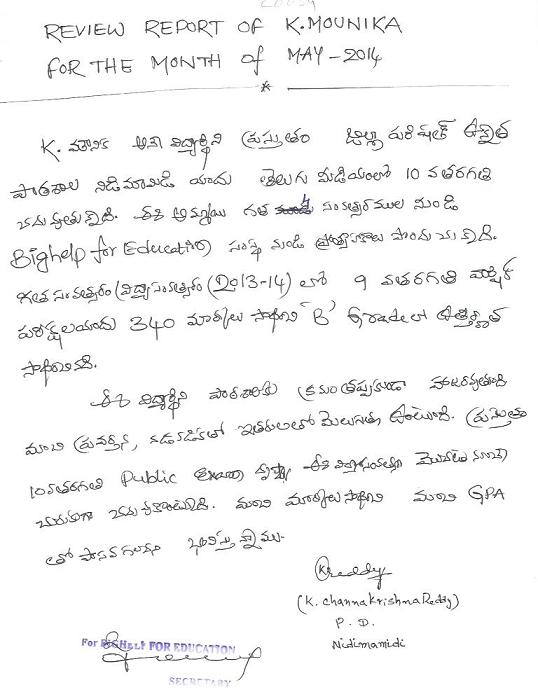 REVIEW REPORT OF K.MOUNIKA
FOR THE MONTH of MAY-2014
K. మౌనిక అను విద్యార్థిని ప్రస్తుతం జిల్లా పరిషత్ ఉన్నత
పాఠశాల నిడిమామిడి యందు తెలుగు మీడియంలో 10 వతరగతి
చదువుతున్నది. ఈ అమ్మాయి గత సంవత్సరముల నుండి
Bighelp for Education సంస్థ నుండి ప్రోత్సాహకాలు పొందుచున్నది.
గతసంవత్సరం (విద్యాసంవత్సరం (2013-14) లో 9 వతరగతి వార్షిక
పరీక్షలయందు 340 మార్కులు సాధించి 'B' Grade లో ఉత్తీర్ణత
సాధించినది.
ఈ విద్యార్థిని పాఠశాలకు క్రమంతప్పకుండా హాజరవుతూ
మంచి ప్రవర్తన, నడవడికతో ఇతరులతో మెలుగుతూ ఉంటుంది.
10వతరగతి Public Exam ఈ విద్యాసంవత్సరం మొదటి నుండి
చురుకుగా చదువుకొంటున్నది. మంచి మార్కులు సాధించి మంచి GPA
తో పాసవగలదని భావిస్తున్నాము.
KReddy
(K. Channa Krishna Reddy)
P. D.
Nidimamidi
For BIGHELP FOR EDUCATION
SECRETARY